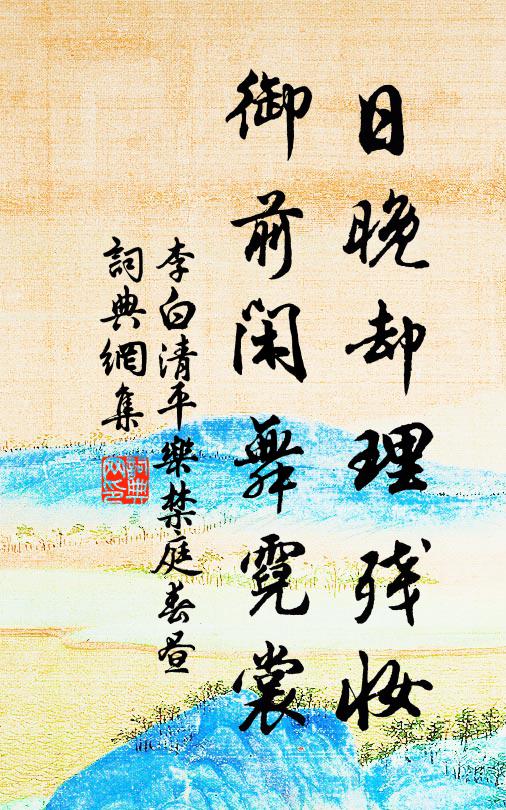 日晚却理残妝
御前閑舞霓裳
李白清平樂禁庭春晝
詞典網集